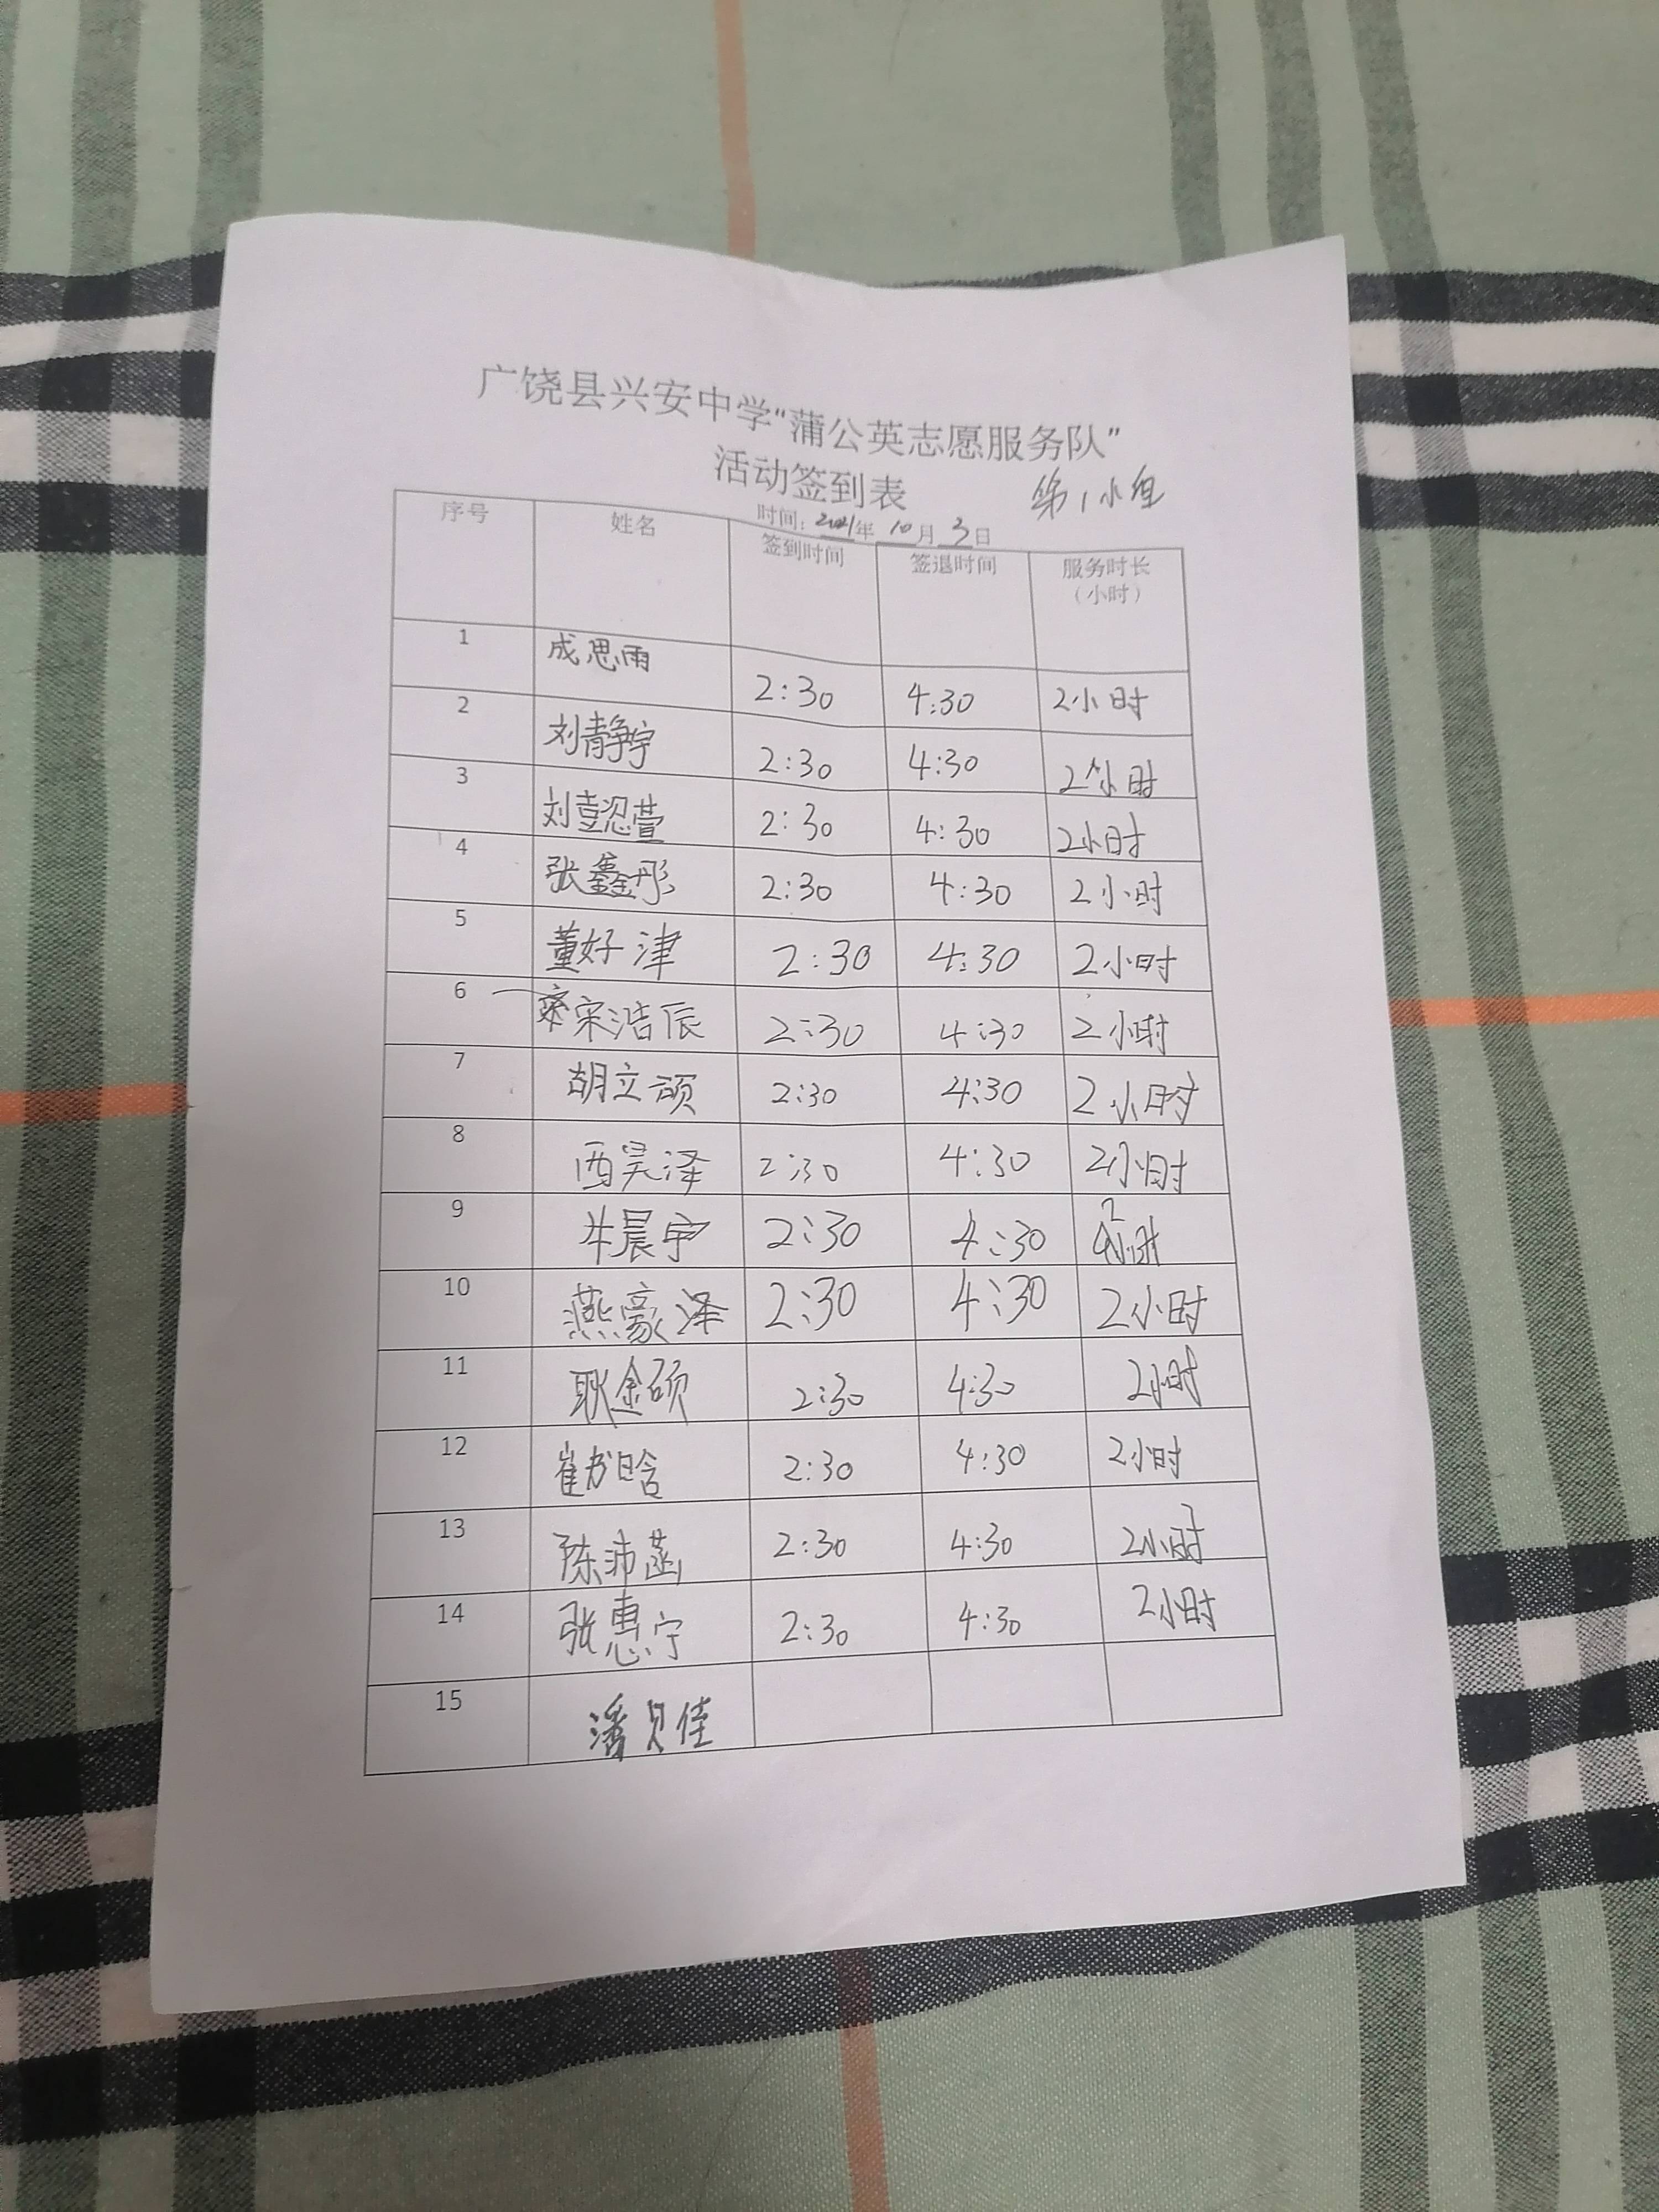 广饶县兴安中学“蒲公英志愿服务队”
活动签到表 第1小组
时间：2021年10月3日
序号 姓名 签到时间 签退时间 服务时长（小时）
1 成思雨 2:30 4:30 2小时
2 刘静宇 2:30 4:30 2小时
3 刘懿萱 2:30 4:30 2小时
4 张鑫彤 2:30 4:30 2小时
5 董好津 2:30 4:30 2小时
6 宋浩辰 2:30 4:30 2小时
7 胡立硕 2:30 4:30 2小时
8 西昊泽 2:30 4:30 2小时
9 牛晨宇 2:30 4:30 2小时
10 燕豪泽 2:30 4:30 2小时
11 耿金硕 2:30 4:30 2小时
12 崔书晗 2:30 4:30 2小时
13 陈沛菡 2:30 4:30 2小时
14 张惠宁 2:30 4:30 2小时
15 潘贝佳